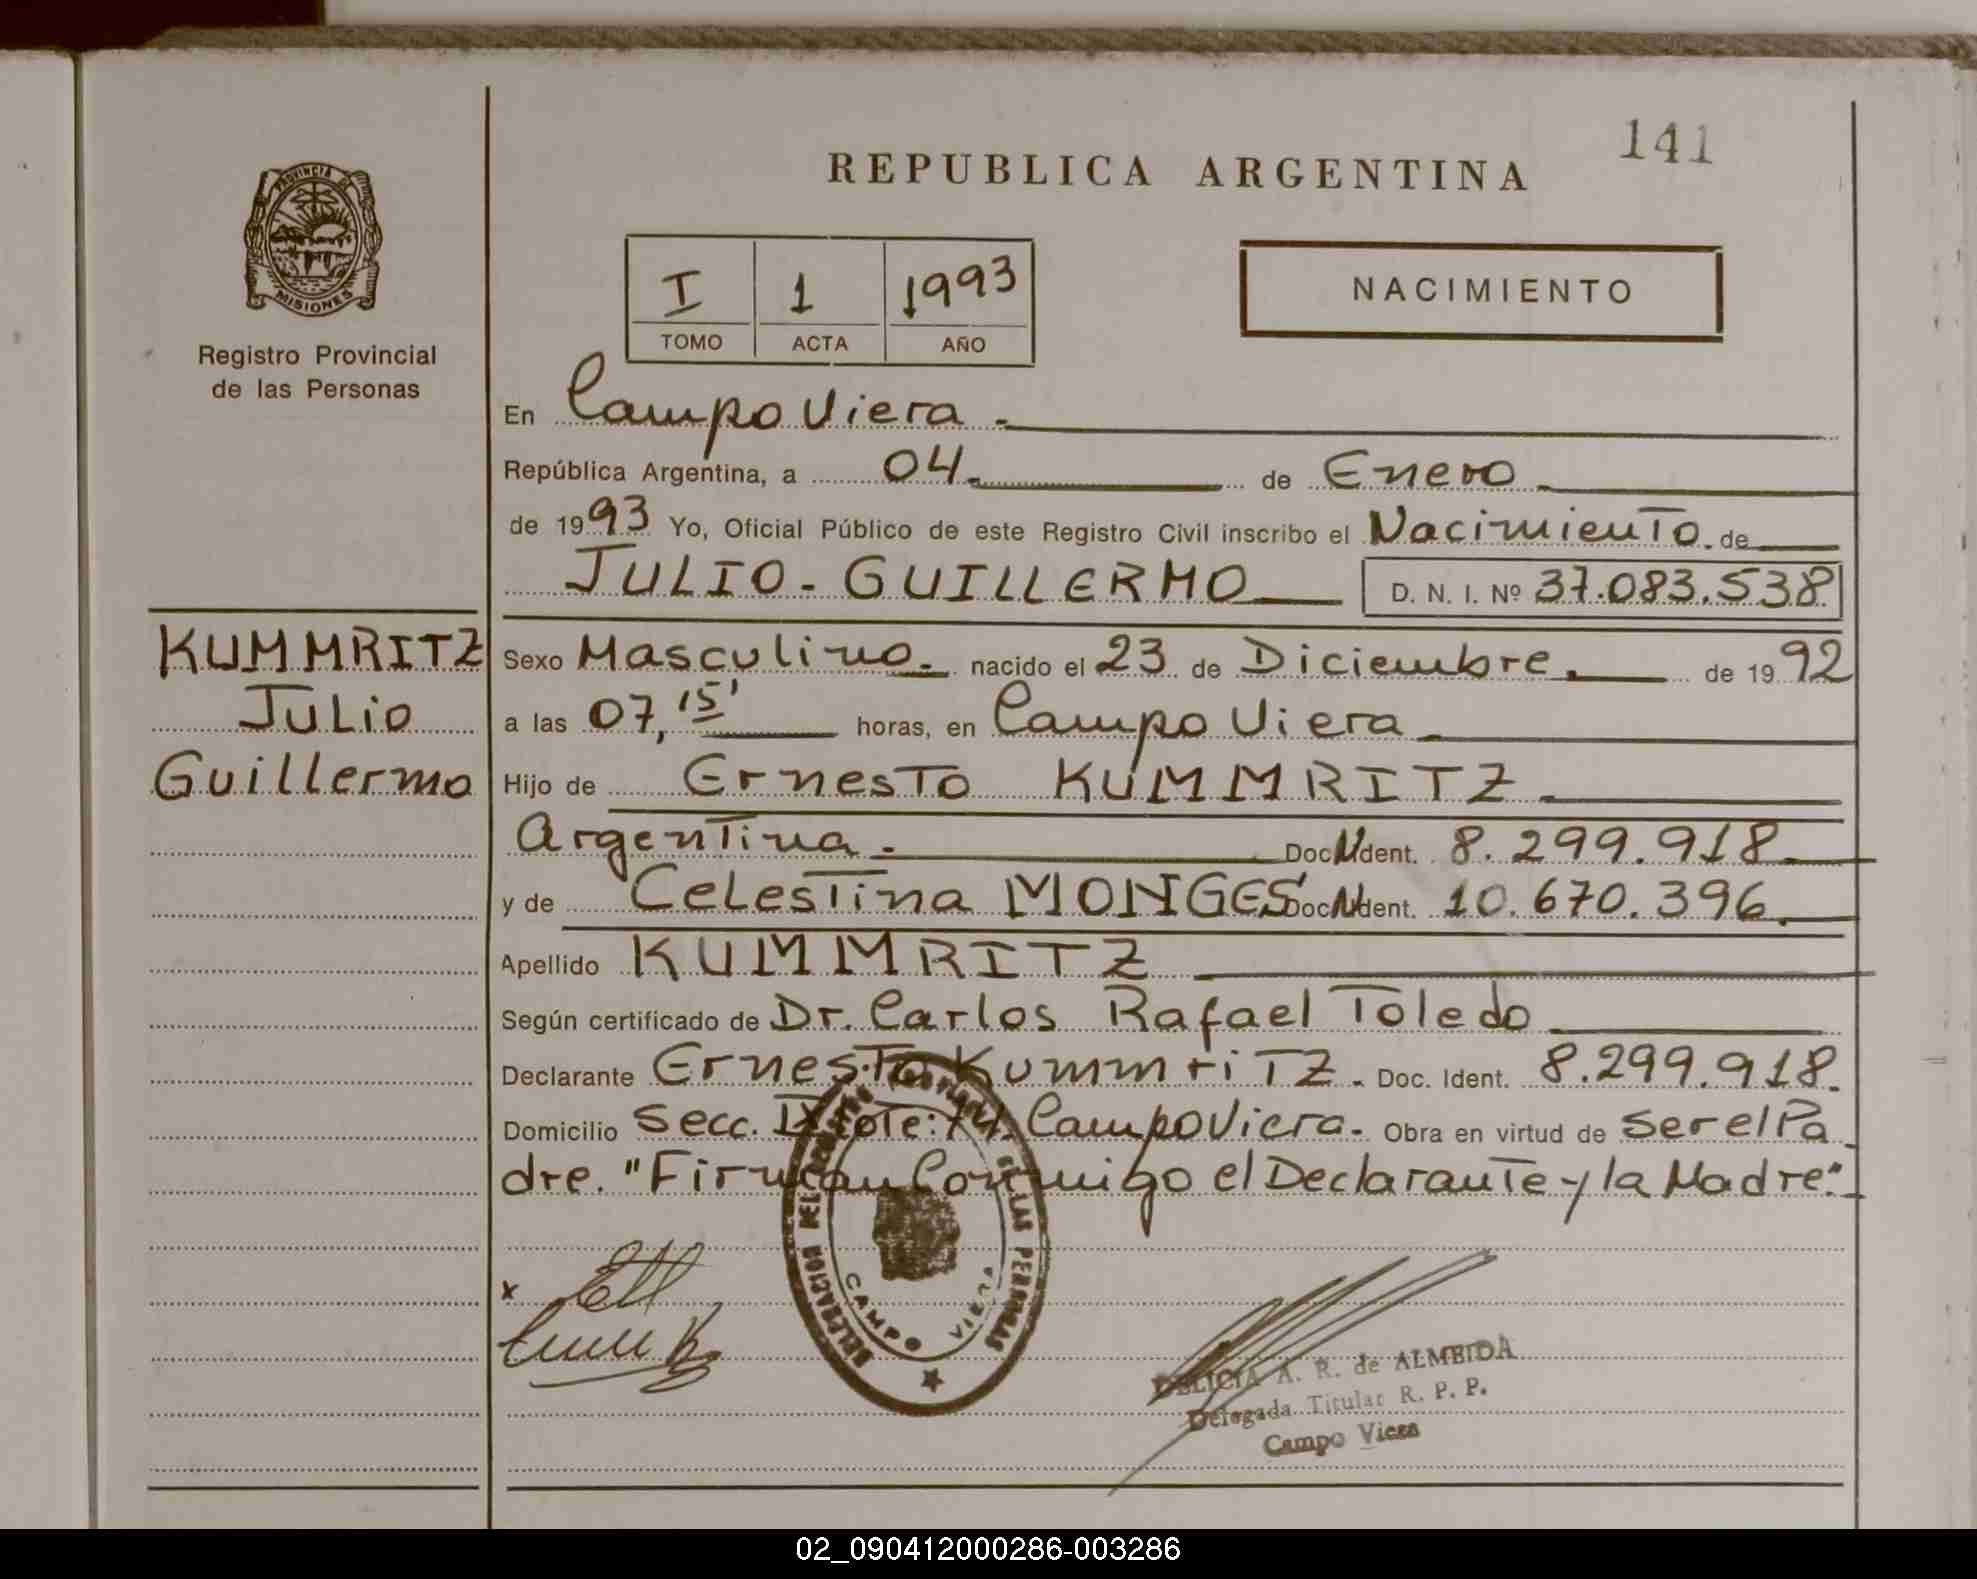 141
REPUBLICA ARGENTINA
PROVINCIA DE
MISIONES
Registro Provincial
de las Personas
I 1 1993
TOMO ACTA AÑO
NACIMIENTO
En Campo Viera.
República Argentina, a 04. de Enero
de 1993 Yo, Oficial Público de este Registro Civil inscribo el Nacimiento. de
JULIO-GUILLERMO D. N. I. Nº 37.083.538
KUMMRITZ
Julio
Guillermo
Sexo Masculino. nacido el 23 de Diciembre. de 1992
a las 07,15' horas, en Campo Viera
Hijo de Ernesto KUMMRITZ
Argentina. Doc. Ident. 8.299.918
y de Celestina MONGES Doc. Ident. 10.670.396.
Apellido KUMMRITZ
Según certificado de Dr. Carlos Rafael Toledo
Declarante Ernesto Kummritz. Doc. Ident. 8.299.918.
Domicilio Secc. Lote: 74. Campo Viera. Obra en virtud de ser el Pa
dre. "Firman Conmigo el Declarante y la Madre"
x
DELEGACION DEL REGISTRO PROVINCIAL DE LAS PERSONAS
CAMPO VIERA
DELICIA A. R. de ALMEIDA
Delegada Titular R. P. P.
Campo Viera
02_090412000286-003286